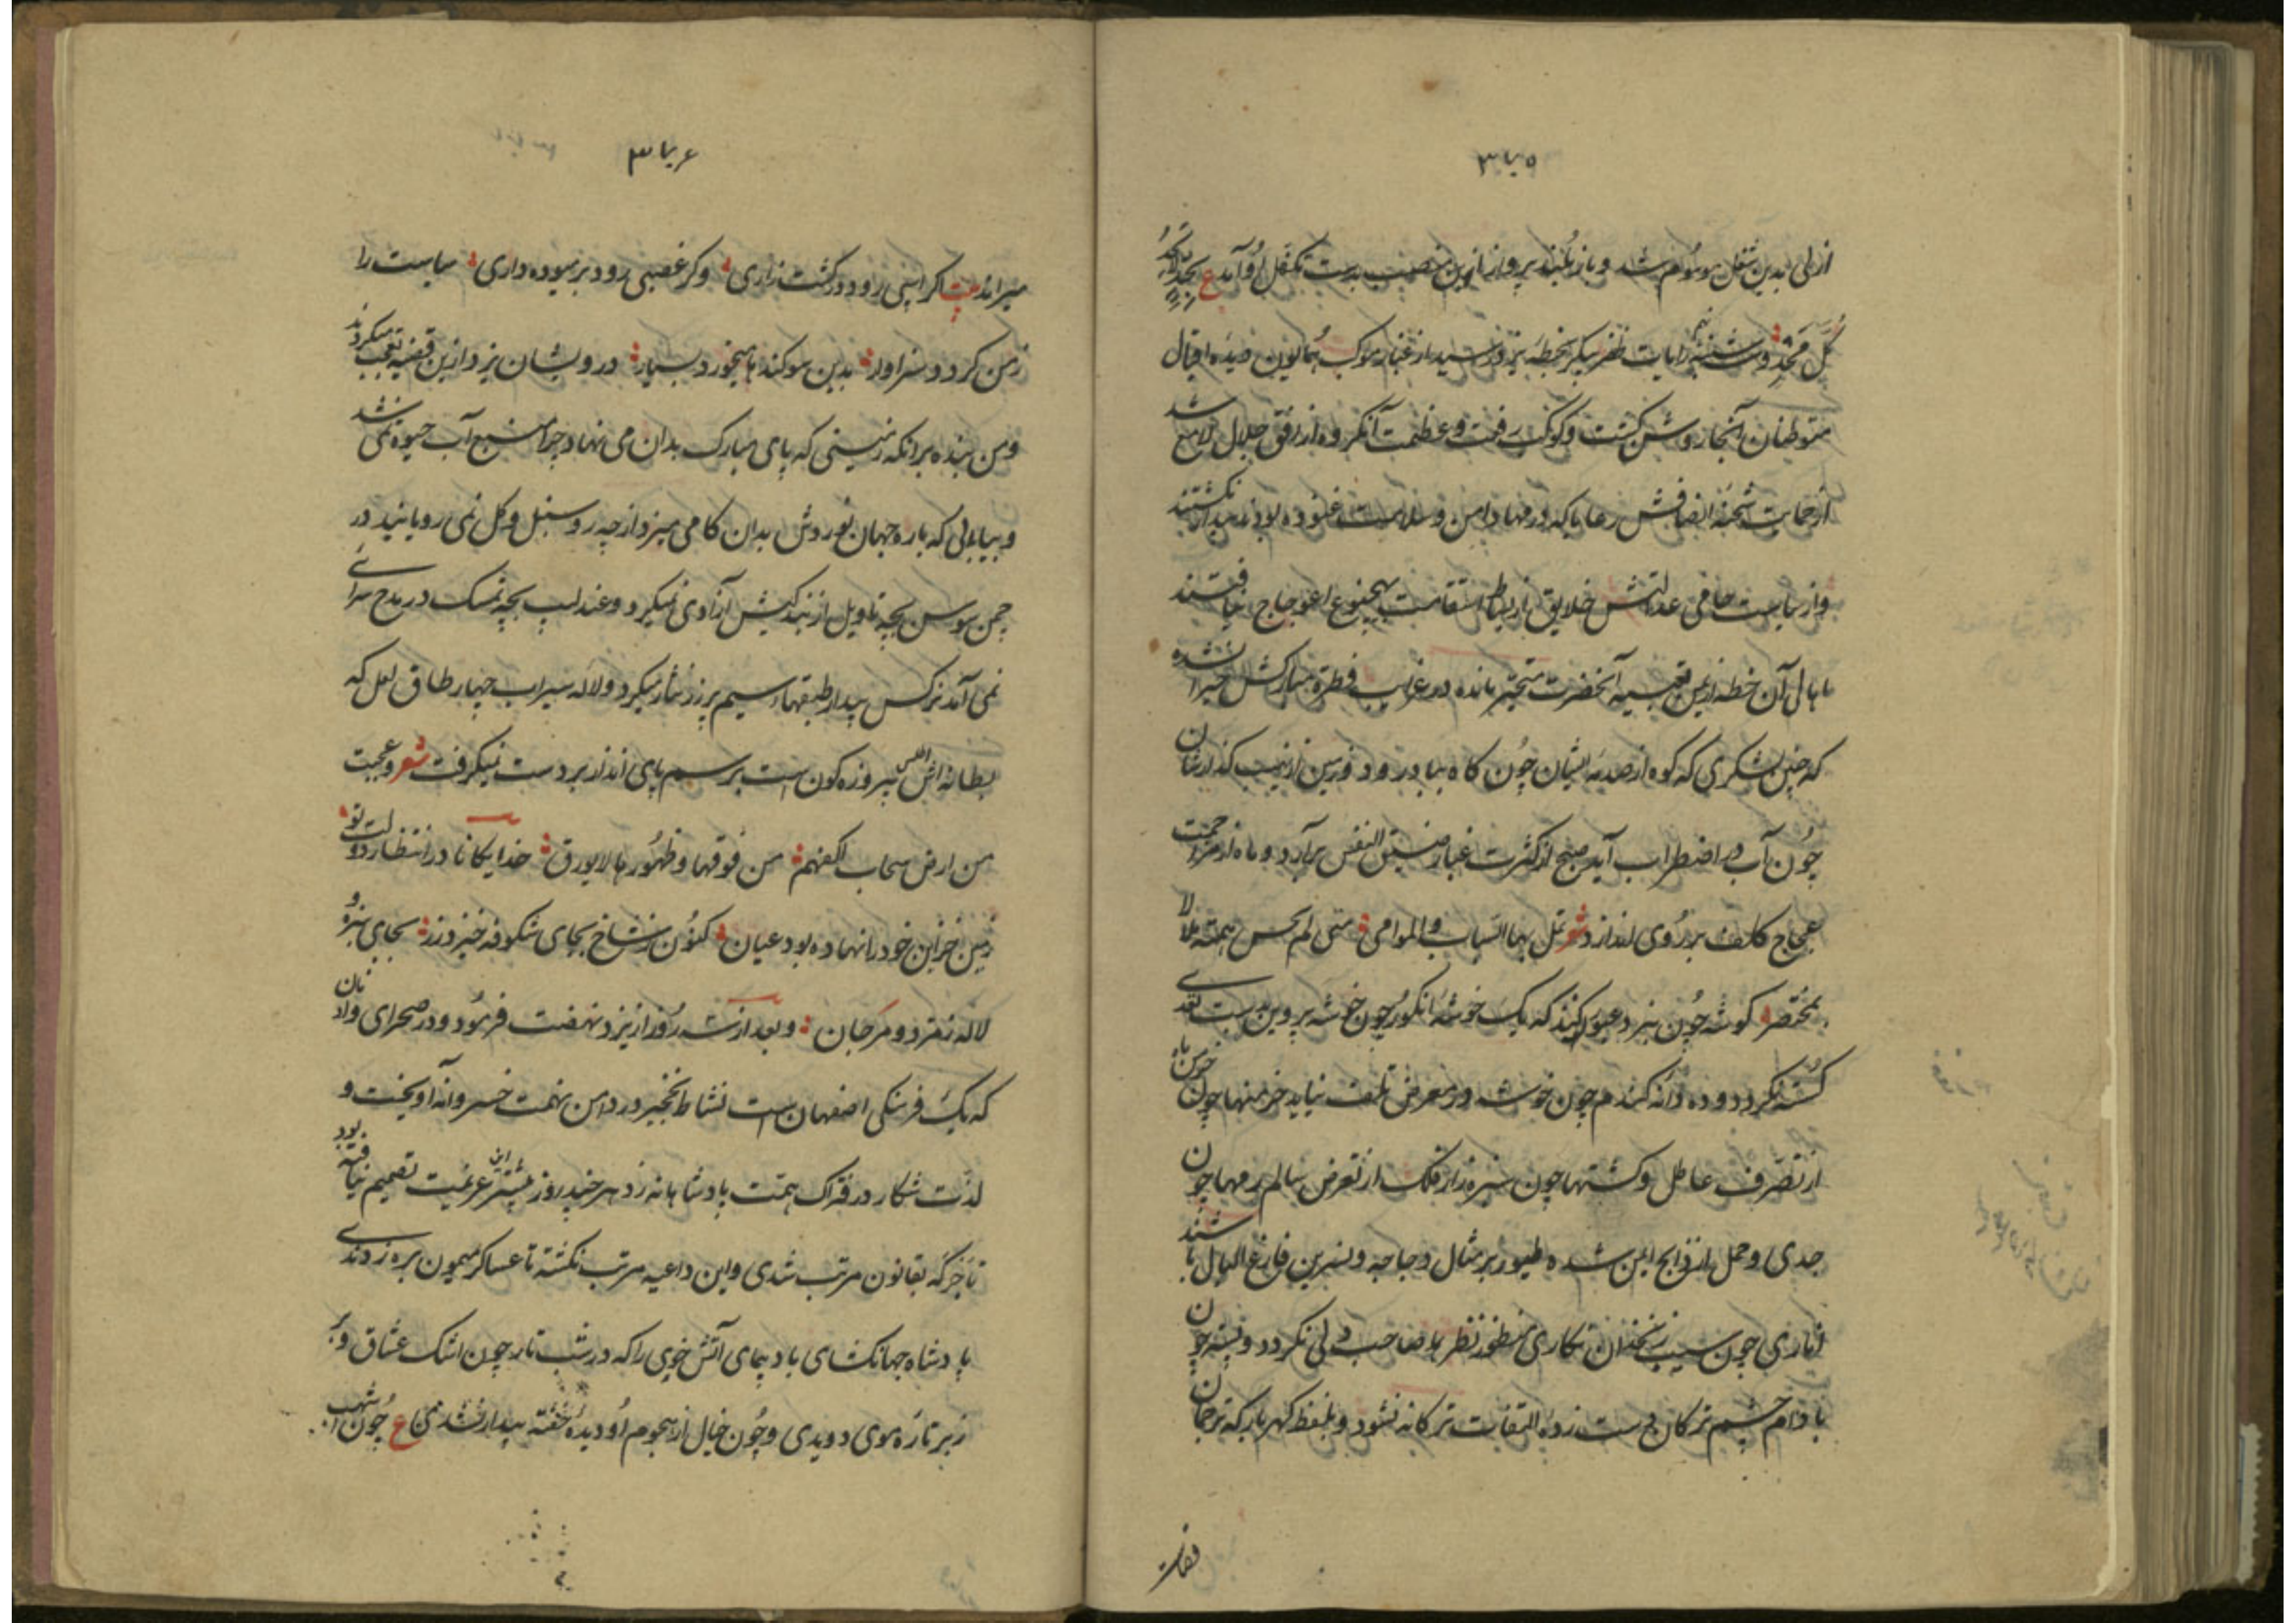 ۳۷۵
ازلی بدین شغل موسوم شد و باز بلند پرواز ازین منصب بدست تکفل او آمد ع
کل مجد و شنبه رایات ظفر پیکر بخطه یزد رسید از غبار موکب همایون دیده اقبال
متوطنان آنجا روشن کشت و کوکب رفعت و عظمت آنکروه از افق جلال لامع شد
از حمایت شحنه انصافش رعایا که در مهاد امن و سلامت غنوده بودند بیدار نکشتند
و از سیاست حامی عدلتش خلایق بازیاط استقامت بهیچنوع اعوجاج نیافتند
اهالی آن خطه ازین قضیه آنحضرت متحیر مانده در غرایب فطرة مبارکش حیران شده
که چنین لشکری که کوه از صدمه ایشان چون کاه بباد رود و زمین از نهیب کذارشان
چون آب در اضطراب آید صبح از کثرت غبار ضیق النفس برآرد و ماه از مزاحمت
عجاج کلف بر روی اندازد شعر تمل بها السباسب والموامی متی لم
بمختصر کوشه چون نبرد عبور کنند که یک خوشه انکور چون خوشه پروین بدست تعدی
کسسته نکردد و ده دانه کندم چون خوشه در معرض تلف نیاید خرمنها چون خرمن ماه
از تصرف عاطل و کشتها چون سبزه زار فلک از تعرض سالم رمها چون
جدی و حمل از ذابح ایمن شده طیور بر مثال دجاجه و نسرین فارغ البال باشند
اناری چون سیب زنخدان نکاری منظور نظر صاحب دلی نکردد و پسته چون
بادام چشم ترکان دست زده التفات ترکانه نشود و بلفظ کهربار که ترجمان
۳۷۶
میراند بیت اکر اسپی رود در کشت زاری وکر غصبی رود بر میوه داری سیاست را
زمن کردد سزاوار بدین سوکند ها میخورد بسیار درویشان یزد ازین قضیه تعجب میکردند
و من بنده بر انکه زمینی که پای مبارک بدان می نهاد چرا منبع آب حیوة نمی شد
و بیابانی که باره جهان نوردش بدان کامی میزد از چه رو سنبل و کل نمی رویانید در
چمن سوسن بچه تاویل از بندکیش آزادی میکرد و عندلیب بچه تمسک در مدح سرای
نمی آمد نرکس بیدار طبقهاء سیم پر زر نثار میکرد و لاله سیراب چهار طاق لعل که
بطانه اش اطلس پیروزه کون است برسم پای انداز بر دست نمیکرفت شعر وعجبت
من ارض سحاب اکفهم من فوقها وظهورها لا یورق خدایکانا در انتظار دولت تو
زمین خزاین خود را نهاده بود عیان کنون ز شاخ بجای شکوفه خیزد زر بجای سبزه و
لاله زمرد و مرجان و بعد از سه روز از یزد نهضت فرمود و در صحرای وادنان
که یک فرسنکی اصفهان است نشاط نخجیر در دامن نهمت خسروانه آویخت و
لذت شکار در فتراک همت پادشاهانه زد هر چند روز پیشتر این عزیمت تصمیم نیافته بود
تا جرکه بقانون مرتب شدی و این داعیه مرتب نکشته تا عساکر میمون بره زدندی
پادشاه جهانکشای باد پیمای آتش خوی را که در شب تار چون اشک عشاق و
زبر تاره موی دویدی و چون خیال از هجوم او دیده خفته بیدار نشدی ع چون